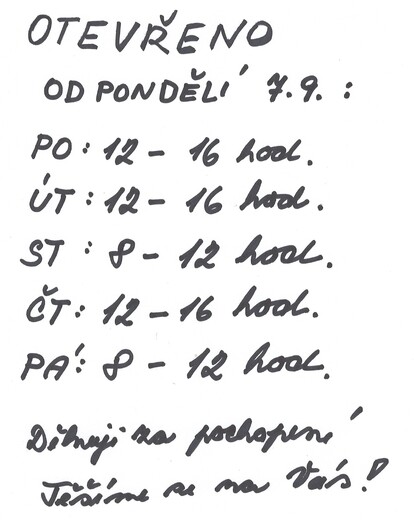 OTEVŘENO
OD PONDĚLÍ 7.9. :
PO : 12 - 16 hod.
ÚT : 12 - 16 hod.
ST : 8 - 12 hod.
ČT : 12 - 16 hod.
PÁ : 8 - 12 hod.
Děkuji za pochopení
Těšíme se na Vás!